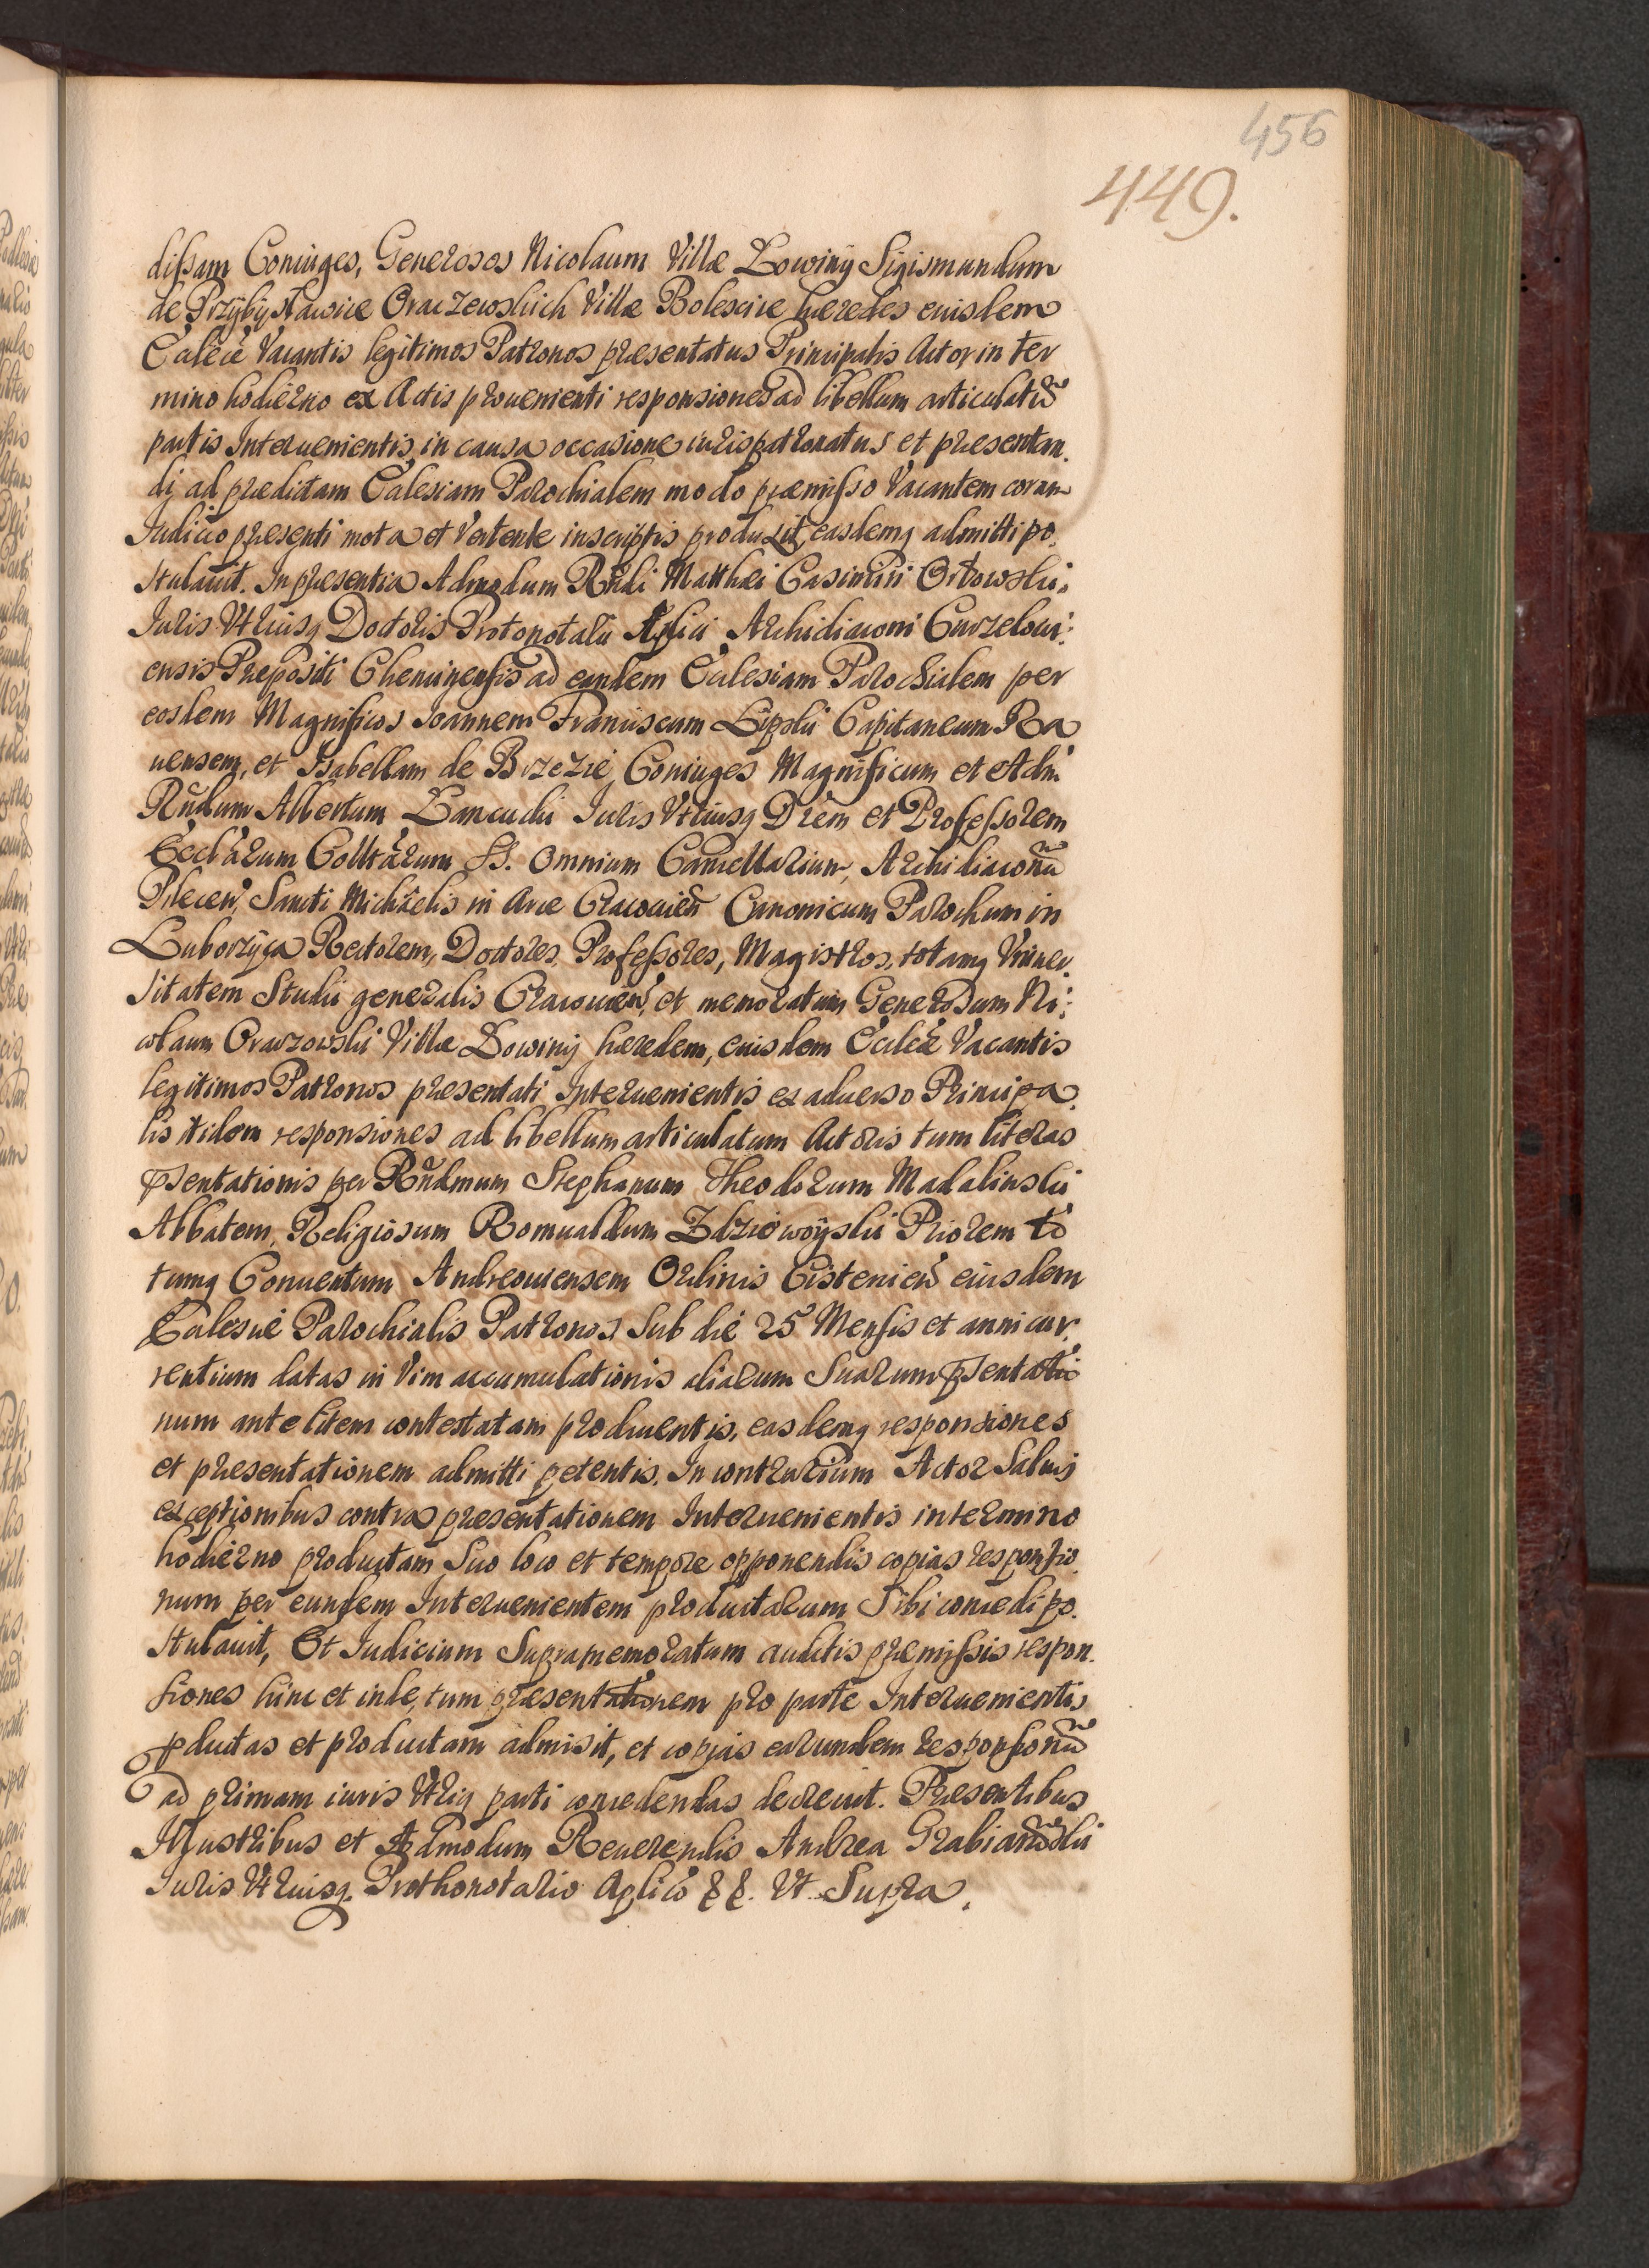 456
449.
dissam Coniuges, Generosos Nicolaum Villæ Łowiny Sigismundum
de Przybysławice Oraczewskich Villæ Bolescice hæredes eiusdem
Ecc͞læ Vacantis legitimos Patronos præsentatus Principalis Actor in ter
mino hodierno ex Actis prouenienti responsiones ad libellum articulatũ
partis Interuenientis, in causa occasione iurispatronatus et præsentan.
di ad prædictam Ecclesiam Parochialem modo præmisso Vacantem coram
Iudicio præsenti mota et Vertente inscriptis produxit, easdemq admitti po.
stulauit. In præsentia Admodum Rñdi Matthæi Casimiri Orłowski:
Iuris Vtriusq Doctoris Protonotarii Aplici Archidiaconi Curzeloui:
ensis Præpositi Chenciñensis ad eandem Ecclesiam Parochialem per
eosdem Magnificos Ioannem Franciscum Lipski Capitaneum Ra
uensem, et Isabellam de Brzezie Coniuges Magnificum et Adm̃
Rñdum Albertum Łancucki Iuris Vtriusq Drem et Professorem
Eccl͞arum Coll͞tarum SS. Omnium Cancellarium, Archidiaconũ
Pilecen̄ Sancti Michaelis in Arce Cracouieñ Canonicum Parochum in
Luborzyca Rectorem, Doctores, Professores, Magistros, totamq Vniuer.
sitatem Studii generalis Cracouieñ, et memoratum Generosum Ni:
colaum Oraczowski Villæ Łowiny hæredem, eiusdem Eccl͞æ Vacantis
legitimos Patronos præsentati Interuenientis ex aduerso Principa.
lis itidem responsiones ad libellum articulatum Actoris tum literas
p̃sentationis per Rñdmum Stephanum Theodorum Madalinski
Abbatem, Religiosum Romualdum Zdziewoyski Priorem to
tumq Conuentum Andreouiensem Ordinis Cistercieñ eiusdem
Ecclesiæ Parochialis Patronos, sub die 25 Mensis et anni cur.
rentium datas in Vim accumulationis aliarum suarum p̃sentatio
num ante litem contestatam producentis, easdemq responsiones
et præsentationem admitti petentis. In contrarium Actor Saluis
exceptionibus contra præsentationem Interuenientis in termino
hodierno productam suo loco et tempore opponendis copias responsio.
num per eundem Interuenientem productarum sibi concedi po.
stulauit, Et Iudicium Supramemoratum auditis præmissis respon.
siones hinc et inde, tum præsentationem pro parte Interuenientis
p̃ductas et productam admisit, et copias earundem responsionũ
ad primam iuris Vtriq parti concedendas decreuit. Præsentibus
Illustribus et Admodum Reuerendis Andrea Grabianowski
Iuris Vtriusq. Prothonotario Aplico && Vt Supra.